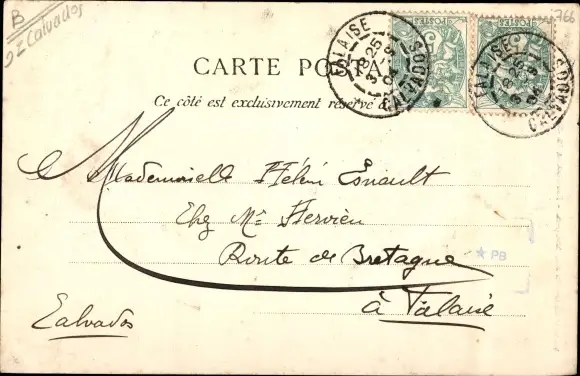 B
Calvados
766
CARTE POSTA
Ce côté est exclusivement réservé à
FALAISE
CALVADOS
POSTES
FALAISE
CALVADOS
Mademoiselle Hélène Esnault
Chez Mr Hervieu
Route de Bretagne
à Falaise
Calvados
★ PB